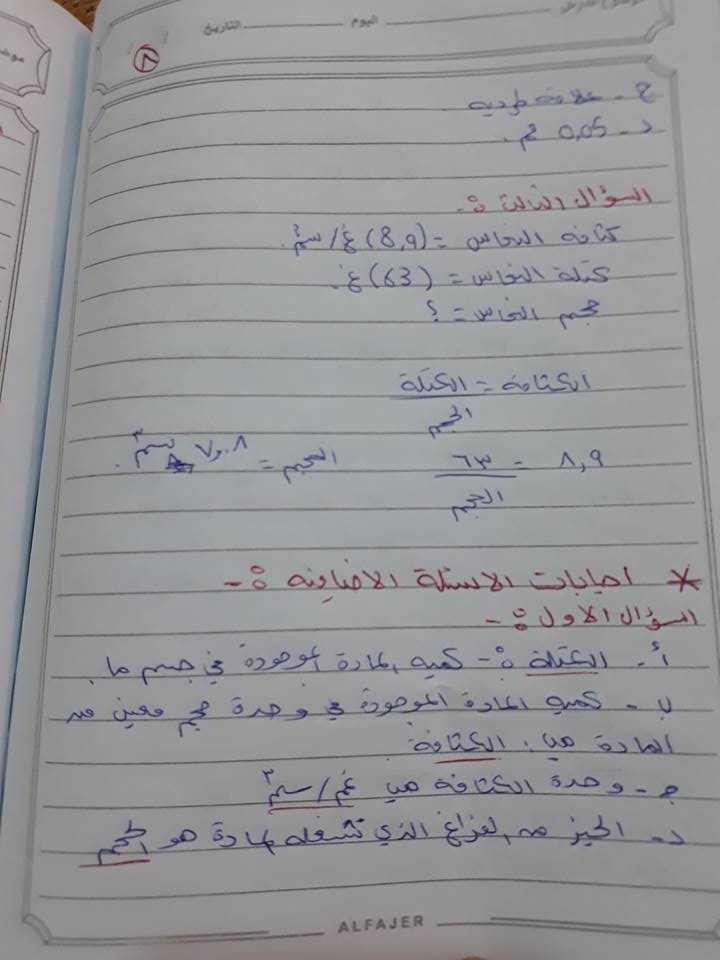 اليوم
التاريخ
٨
ج - علاقة طردية
د - 0,05 كم.
السؤال الثالث :-
كثافة النحاس = (8,9) غ/سم³.
كتلة النحاس = (63) غ.
حجم النحاس = ؟
الكثافة = الكتلة
الحجم
٨,٩ = ٦٣ الحجم = ٧,٠٨ سم٣.
الحجم
* اجابات الاسئلة الاضافية :-
السؤال الاول :-
أ- الكتلة :- كمية المادة الموجودة في جسم ما.
ب - كمية المادة الموجودة في وحدة حجم معين من
المادة هي: الكثافة.
جـ - وحدة الكثافة هي غم/سم٣
د- الحيز من الفراغ الذي تشغله المادة هو الحجم
ALFAJER